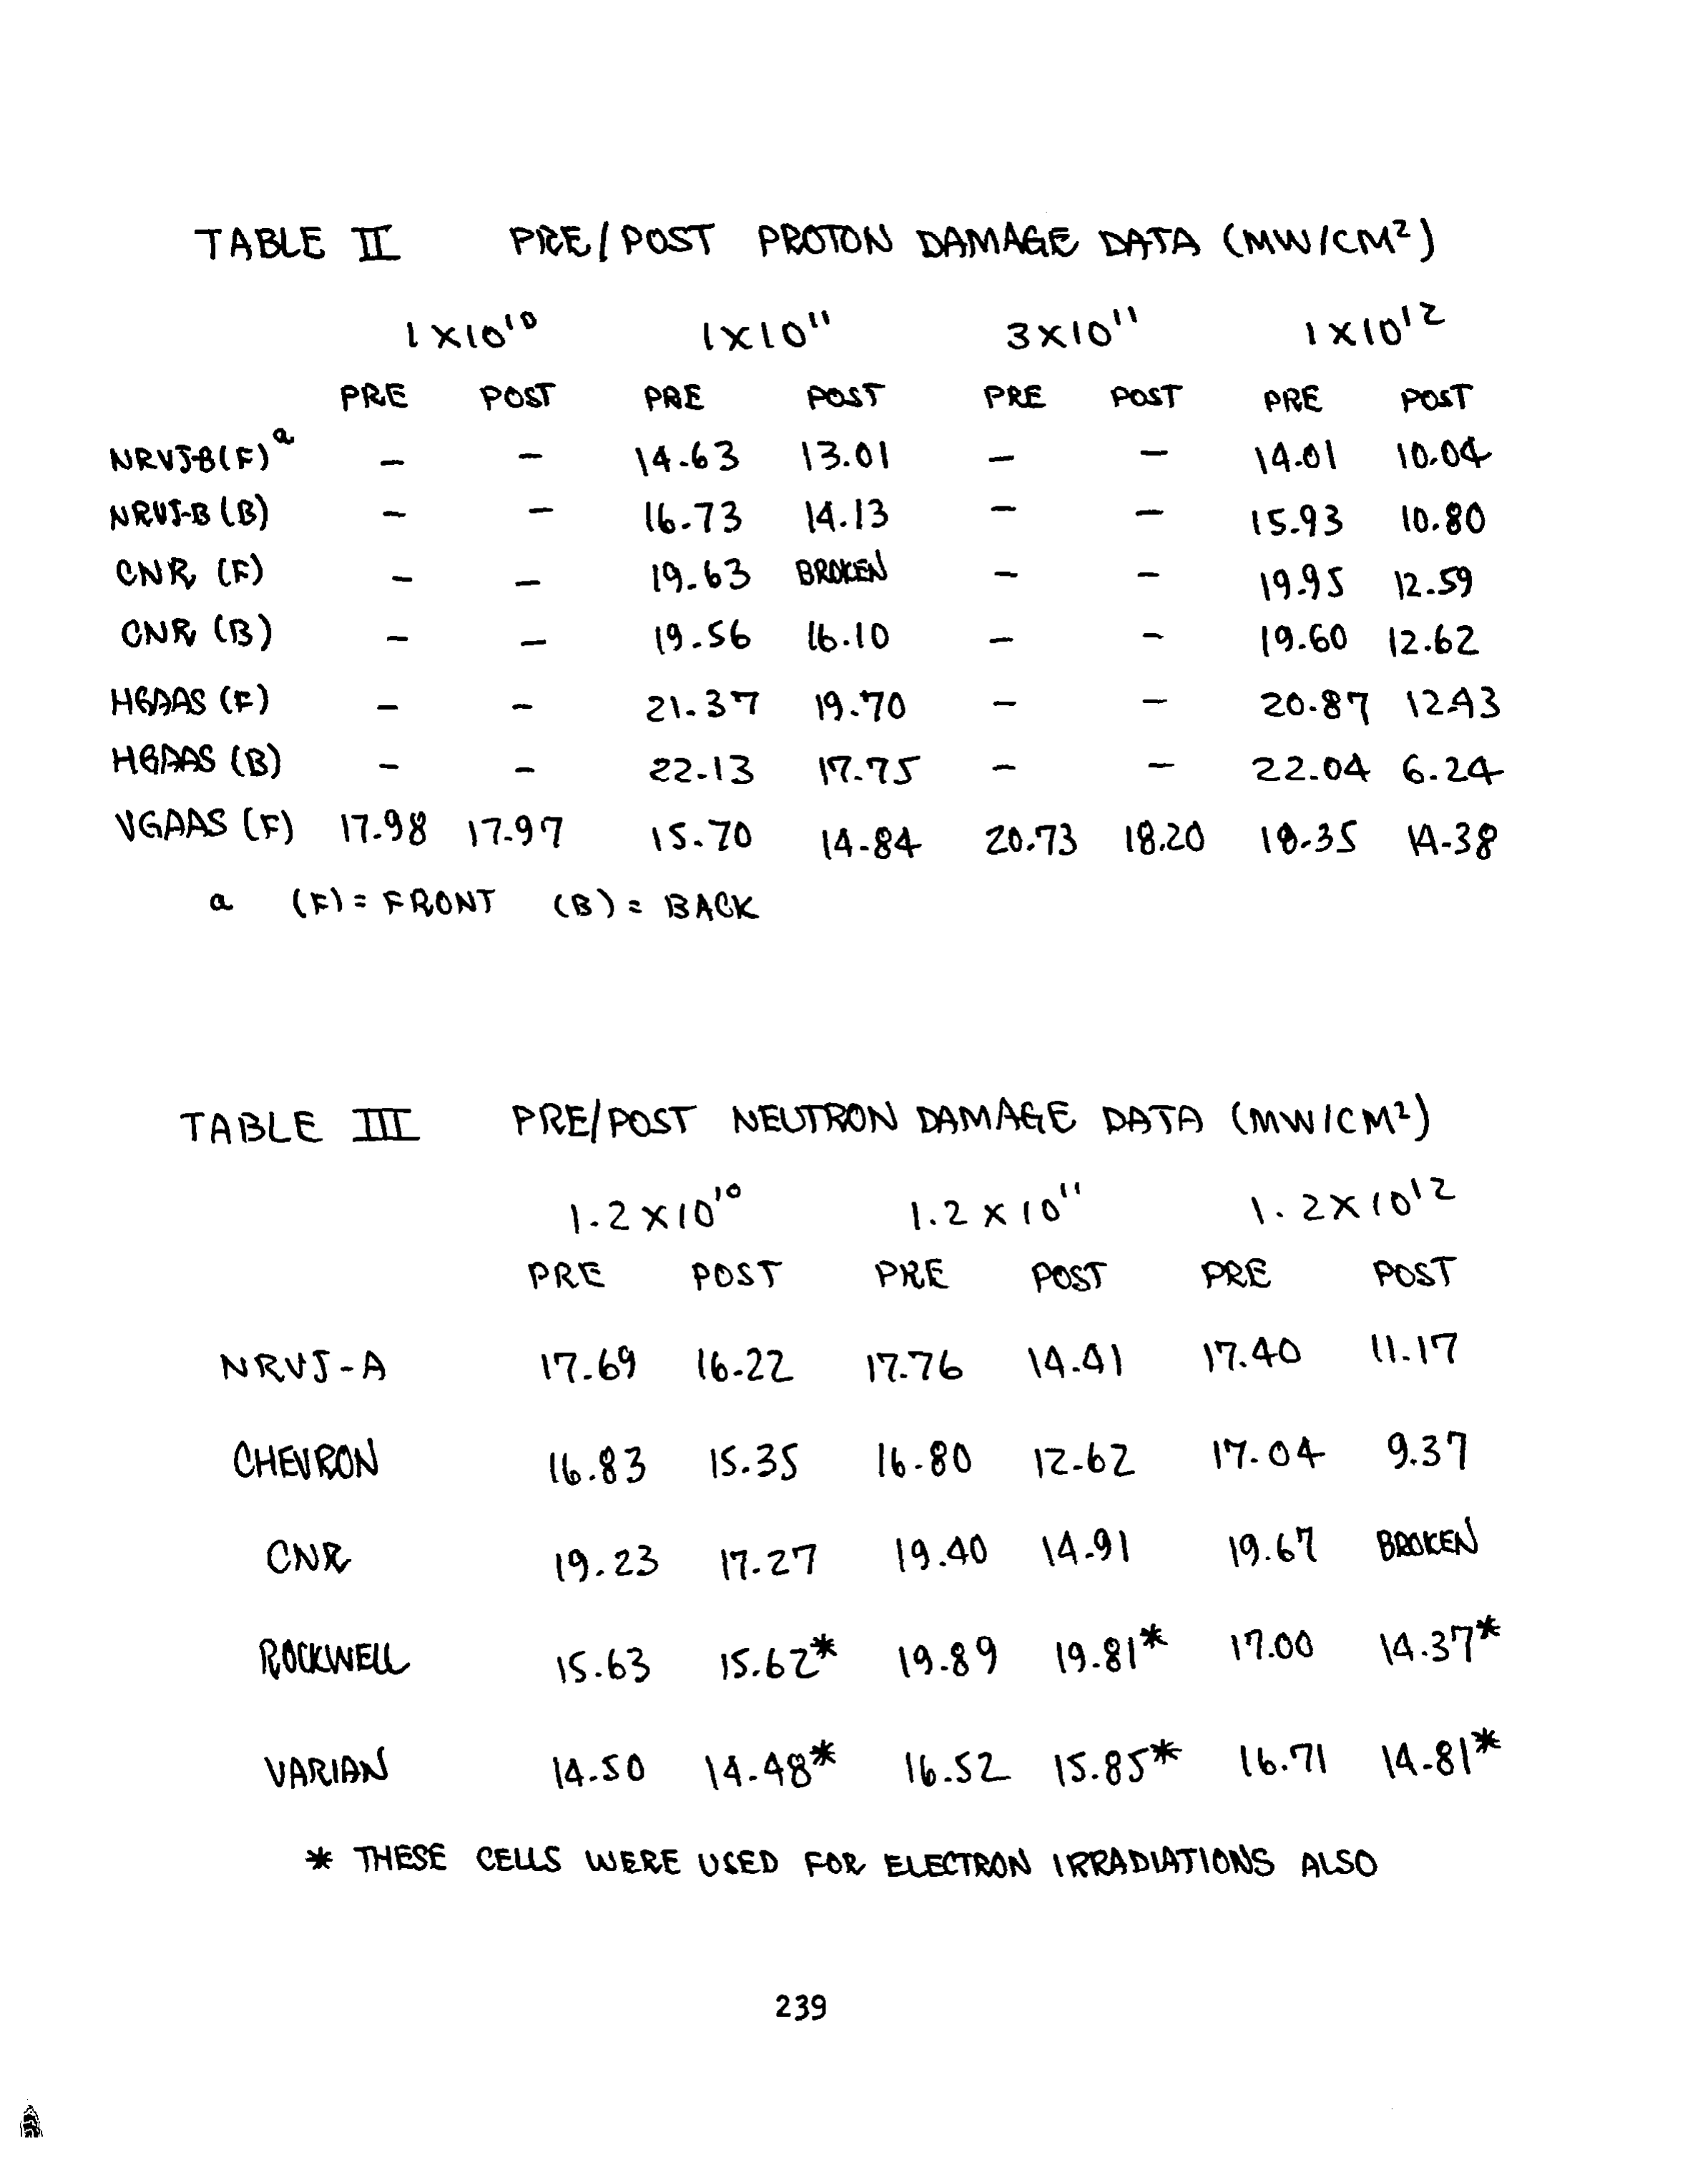 TABLE II PRE/POST PROTON DAMAGE DATA (MW/CM²)
1X10¹⁰ 1X10¹¹ 3X10¹¹ 1X10¹²
PRE POST PRE POST PRE POST PRE POST
NRVJ-B(F)ᵃ – – 14.63 13.01 – – 14.01 10.04
NRVJ-B(B) – – 16.73 14.13 – – 15.93 10.80
CNR (F) – – 19.63 BROKEN – – 19.95 12.59
CNR (B) – – 19.56 16.10 – – 19.60 12.62
HGAAS (F) – – 21.37 19.70 – – 20.87 12.43
HGAAS (B) – – 22.13 17.75 – – 22.04 6.24
VGAAS (F) 17.98 17.97 15.70 14.84 20.73 18.20 18.35 14.38
a (F) = FRONT (B) = BACK
TABLE III PRE/POST NEUTRON DAMAGE DATA (MW/CM²)
1.2X10¹⁰ 1.2X10¹¹ 1.2X10¹²
PRE POST PRE POST PRE POST
NRVJ-A 17.69 16.22 17.76 14.41 17.40 11.17
CHEVRON 16.83 15.35 16.80 12.62 17.04 9.37
CNR 19.23 17.27 19.40 14.91 19.67 BROKEN
ROCKWELL 15.63 15.62* 19.89 19.81* 17.00 14.37*
VARIAN 14.50 14.48* 16.52 15.85* 16.71 14.81*
* THESE CELLS WERE USED FOR ELECTRON IRRADIATIONS ALSO
239